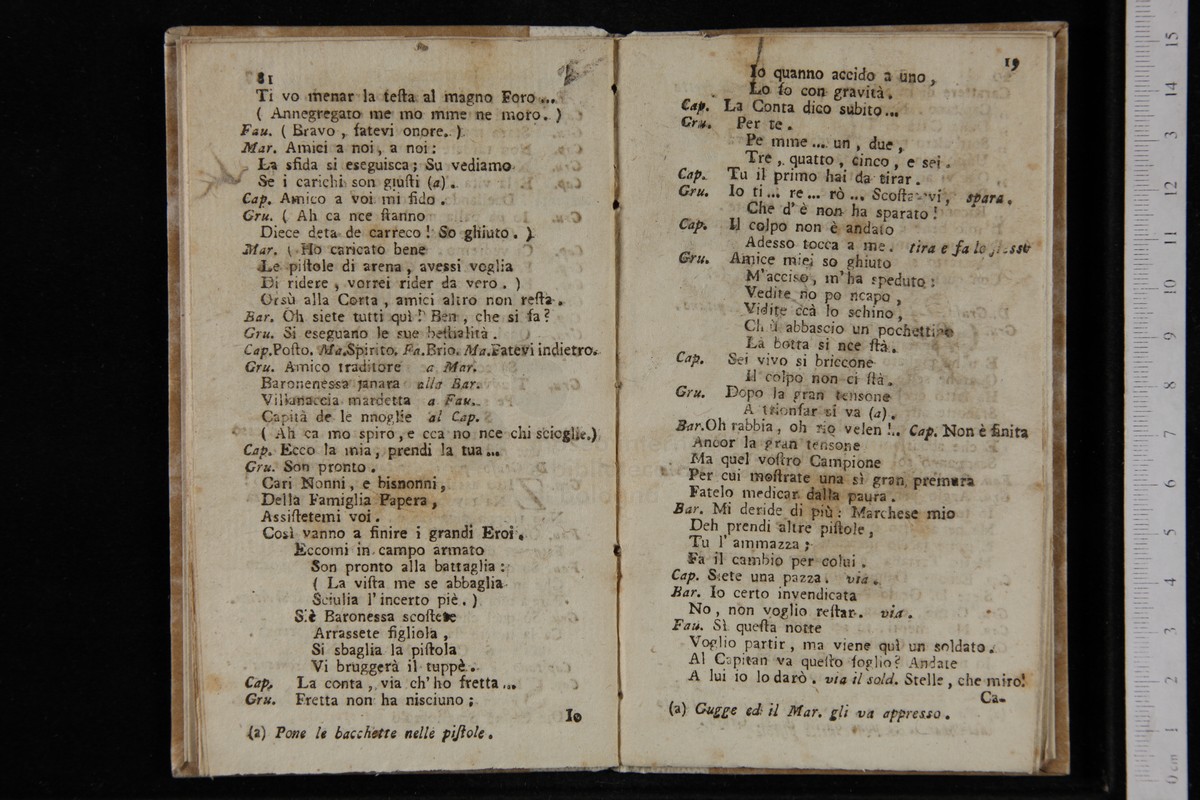 81
Ti vo menar la teſta al magno Foro...
( Annegregato me mo mme ne moro. )
Fau. ( Bravo , fatevi onore. )
Mar. Amici a noi, a noi:
La sfida si eseguisca; Su vediamo
Se i carichi son giuſti (a).
Cap. Amico a voi mi fido.
Gru. ( Ah ca nce ſtanno
Diece deta de carreco! So ghiuto. )
Mar. ( Ho caricato bene
Le piſtole di arena , avessi voglia
Di ridere , vorrei rider da vero. )
Orsù alla Corta , amici altro non reſta.
Bar. Oh siete tutti quì! Ben , che si fa?
Gru. Si eseguano le sue beſtialità.
Cap.Poſto. Ma.Spirito. Fa.Brio. Ma.Fatevi indietro.
Gru. Amico traditore a Mar.
Baronenessa janara alla Bar.
Villanaccia mardetta a Fau.
Capità de le nnoglie al Cap.
( Ah ca mo spiro, e cca no nce chi scioglie.)
Cap. Ecco la mia, prendi la tua...
Gru. Son pronto.
Cari Nonni, e bisnonni,
Della Famiglia Papera,
Assiſtetemi voi.
Così vanno a finire i grandi Eroi.
Eccomi in campo armato
Son pronto alla battaglia :
( La viſta me se abbaglia
Sciulia l'incerto piè. )
Sie Baronessa scoſteve
Arrassete figliola ,
Si sbaglia la piſtola
Vi bruggerà il tuppè.
Cap. La conta , via ch'ho fretta...
Gru. Fretta non ha nisciuno ;
Io
(a) Pone le bacchette nelle piſtole.
19
Io quanno accido a uno,
Lo ſo con gravità.
Cap. La Conta dico subito...
Gru. Per te.
Pe mme ... un , due,
Tre , quatto , cinco , e sei.
Cap. Tu il primo hai da tirar.
Gru. Io ti... re... rò ... Scoſtatevi, spara.
Che d'è non ha sparato!
Cap. Il colpo non è andato
Adesso tocca a me. tira e fa lo ſtesso
Gru. Amice miei so ghiuto
M'acciso, m'ha speduto :
Vedite no po ncapo,
Vidite ccà lo schino,
Chiù abbascio un pochettino
La botta si nce ſtà.
Cap. Sei vivo si briccone
Il colpo non ci ſtà.
Gru. Dopo la gran tensone
A trionfar si va (a).
Bar.Oh rabbia, oh rio velen!.. Cap. Non è finita
Ancor la gran tensone
Ma quel voſtro Campione
Per cui moſtrate una sì gran premura
Fatelo medicar dalla paura.
Bar. Mi deride di più: Marchese mio
Deh prendi altre piſtole,
Tu l'ammazza ;
Fa il cambio per colui.
Cap. Siete una pazza. via.
Bar. Io certo invendicata
No, non voglio reſtar. via.
Fau. Sì queſta notte
Voglio partir, ma viene quì un soldato.
Al Capitan va queſto foglio? Andate
A lui io lo darò. via il sold. Stelle, che miro!
Ca-
(a) Gugge ed il Mar. gli va appresso.
15
14
13
12
11
10
9
8
7
6
5
4
3
2
1
0 cm